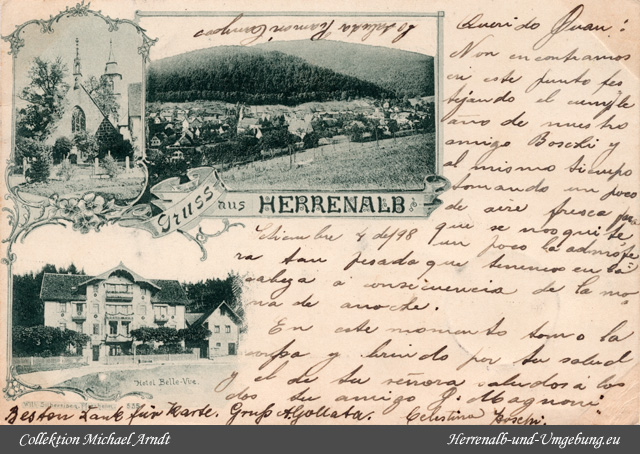 Te saluda Ramon
Querido Juan!
Non encontramos
en este punto fes
tejando el cumple
año de nuestro
amigo Boschi y
al mismo tiempo
tomando un poco
de aire fresco para
que se nos quite
Gruss aus HERRENALB
Diciembre 4 de /98 un poco la admósfe
ra tan pesada que tenemos en la
cabeza á consecuencia de la mo
na de anoche.
En este momento tomo la
copa y brindo por su salud
y el de tu señora saludos á los
dos tu amigo J. Magnoni
Hotel Belle-Vue
Besten Dank für Karte. Gruß A. Gollata. Celestina Boschi.
Kollektion Michael Arndt
Herrenalb-und-Umgebung.eu